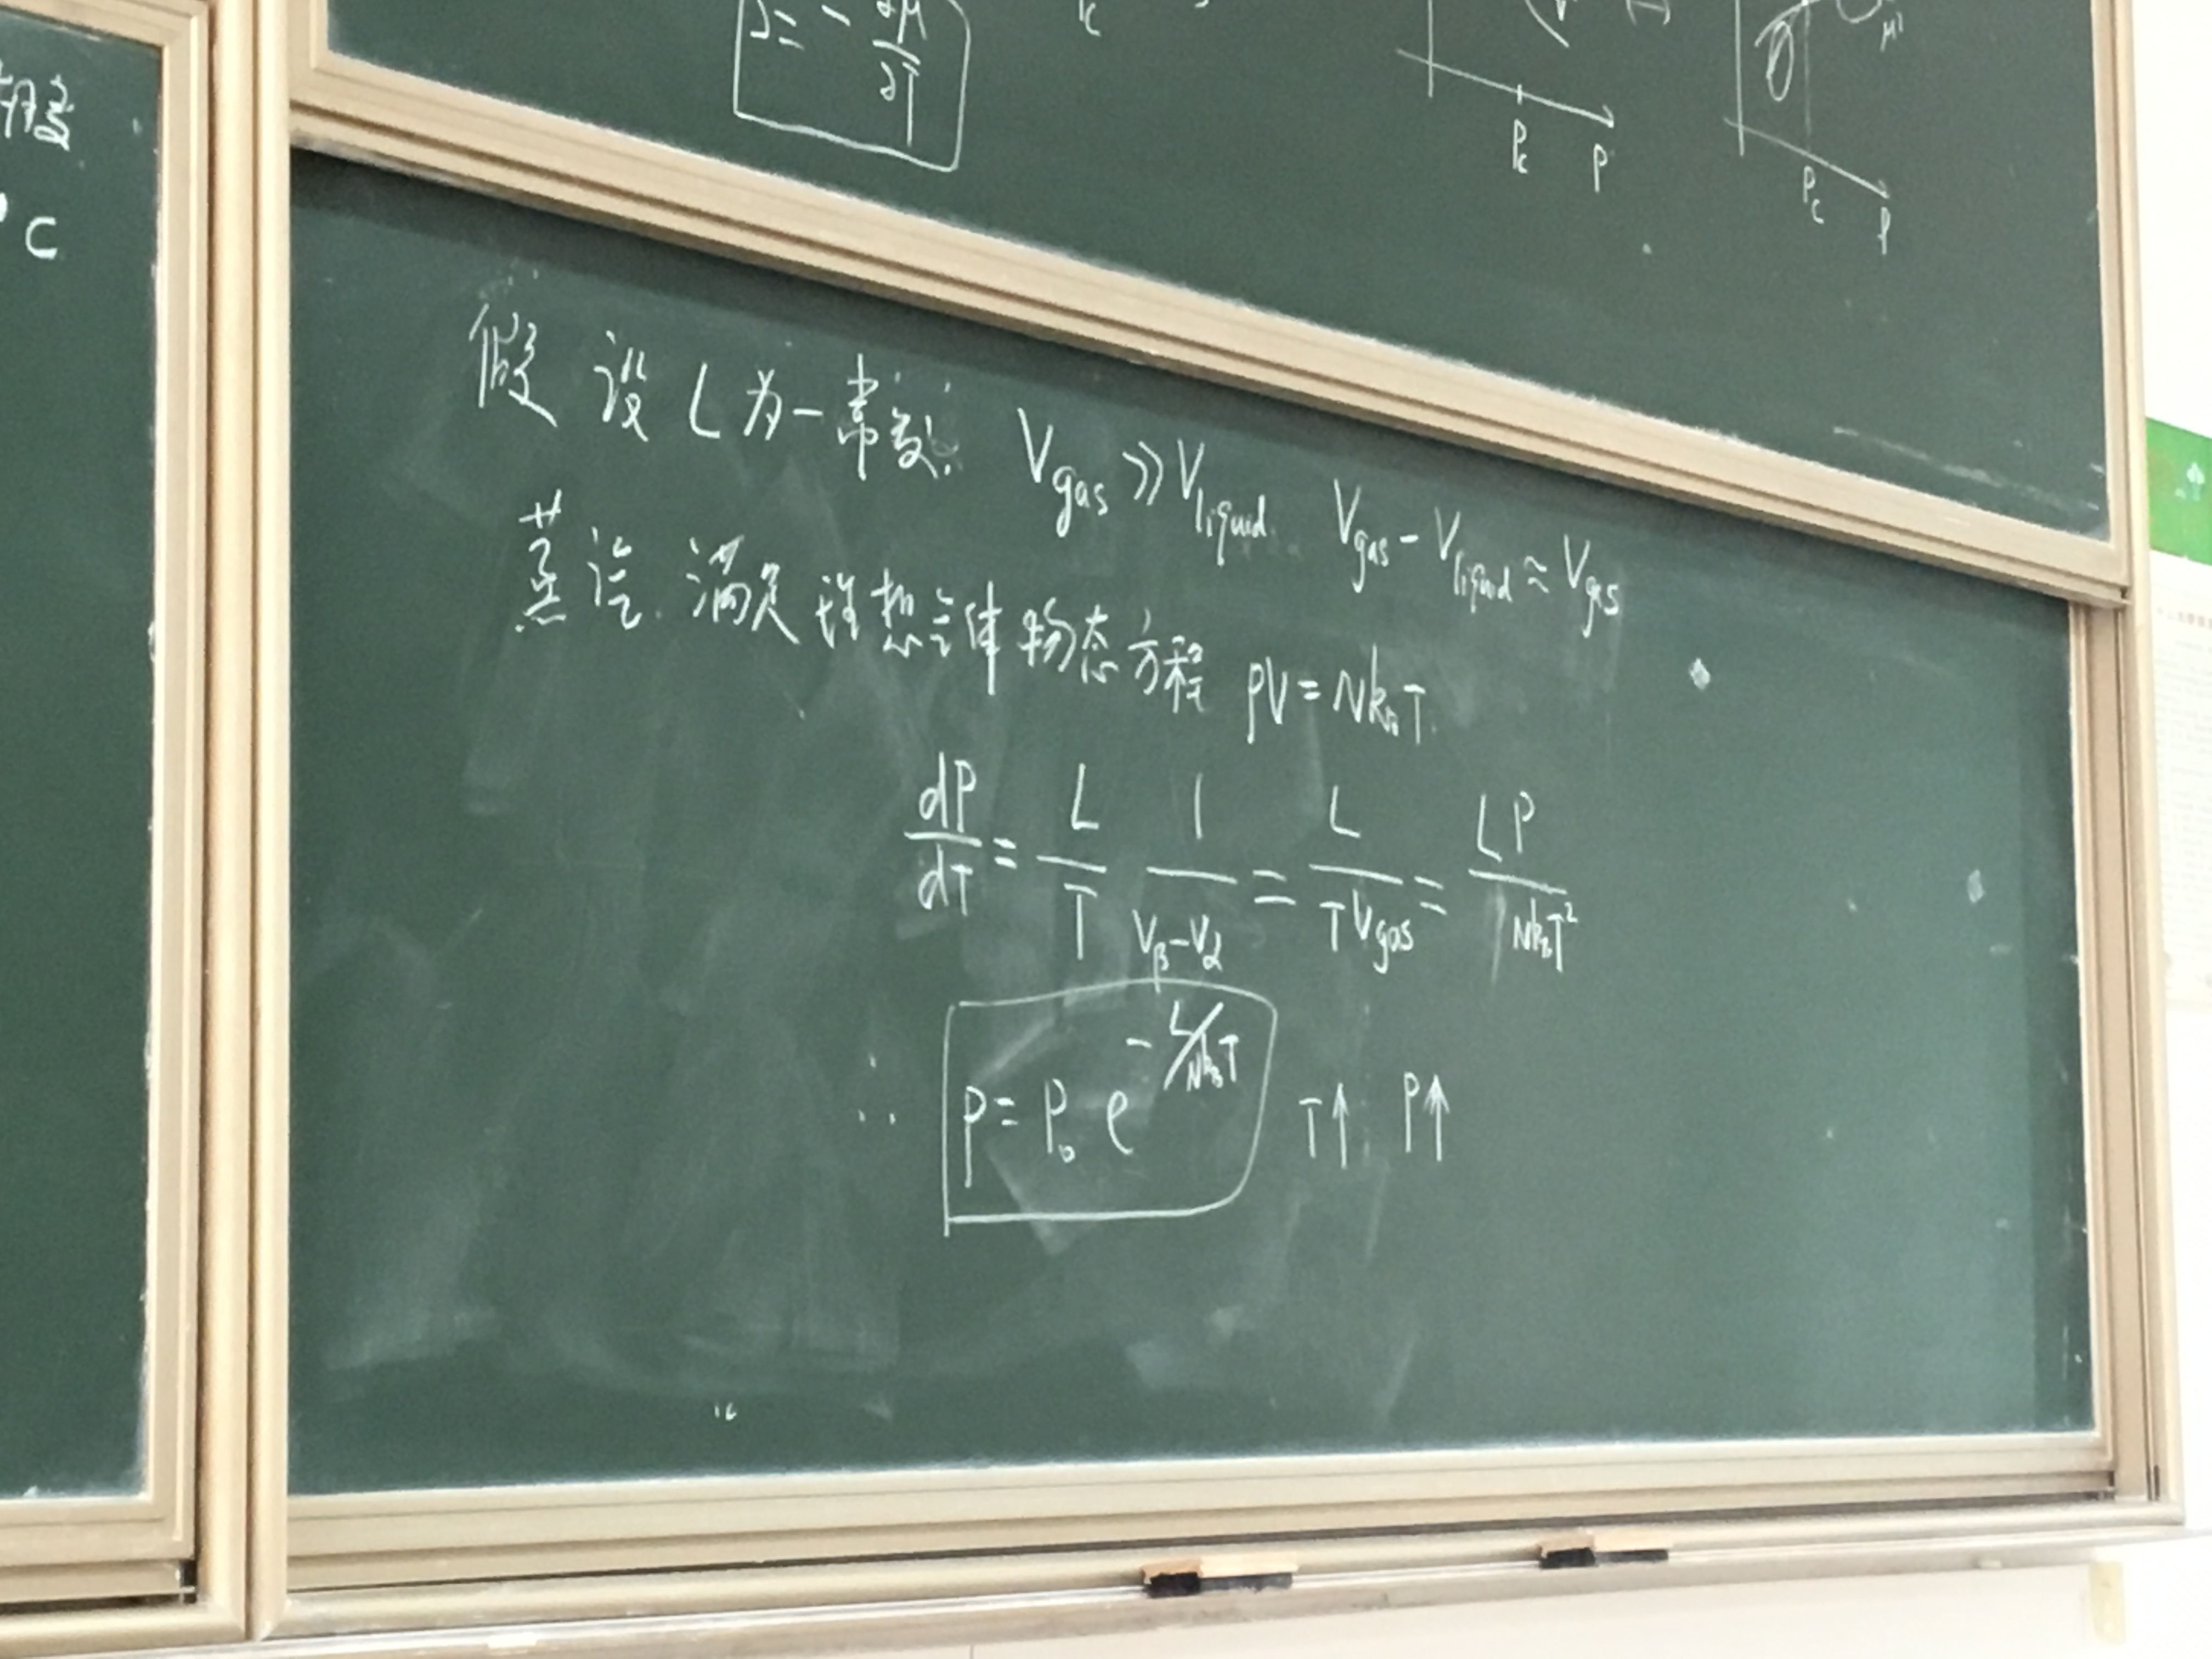 S = - ∂μ/∂T
Pc P
Pc P
相变
C
假设 L 为一常数. Vgas ≫ Vliquid. Vgas - Vliquid ≈ Vgas
蒸汽. 满足理想气体物态方程 pV = NkBT.
dP/dT = L/T 1/(Vβ-Vα) = L/(TVgas) = LP/(NkBT²)
∴ P = P₀ e^(-L/NkBT) T↑ P↑